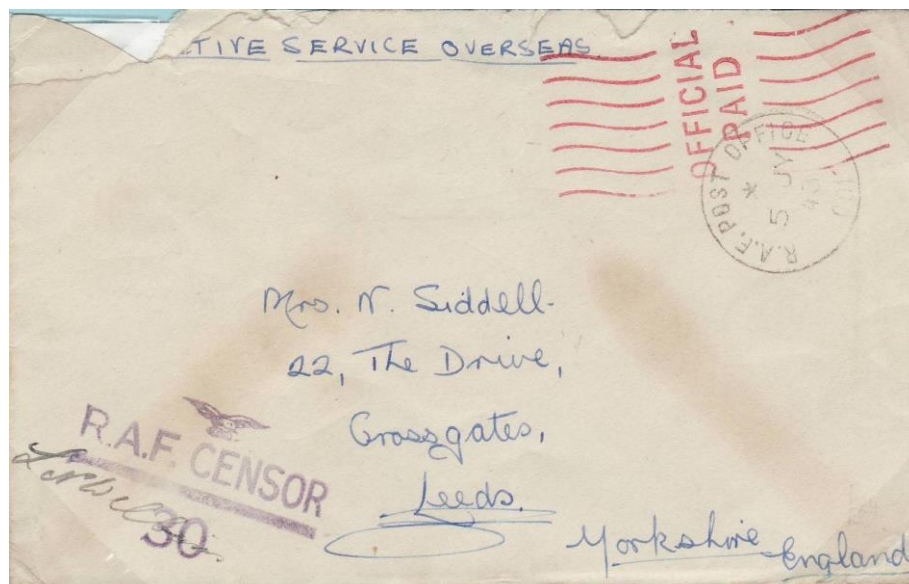 TIVE SERVICE OVERSEAS
OFFICIAL
PAID
R.A.F. POST OFFICE
*
5 JY
Mrs. N. Siddell.
22, The Drive,
Crossgates,
Leeds.
Yorkshire
England
R.A.F. CENSOR
30